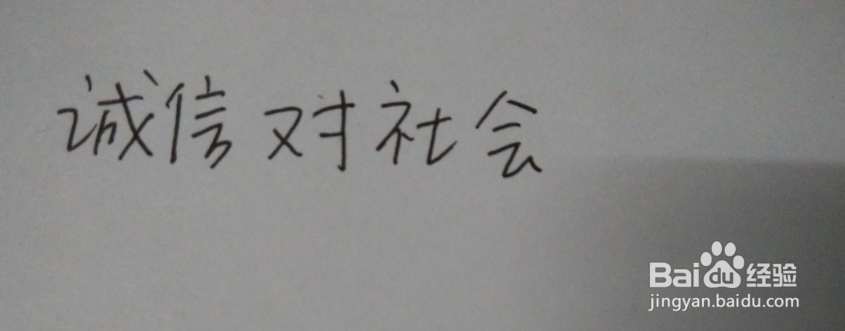 诚信对社会
Baidu经验
jingyan.baidu.com